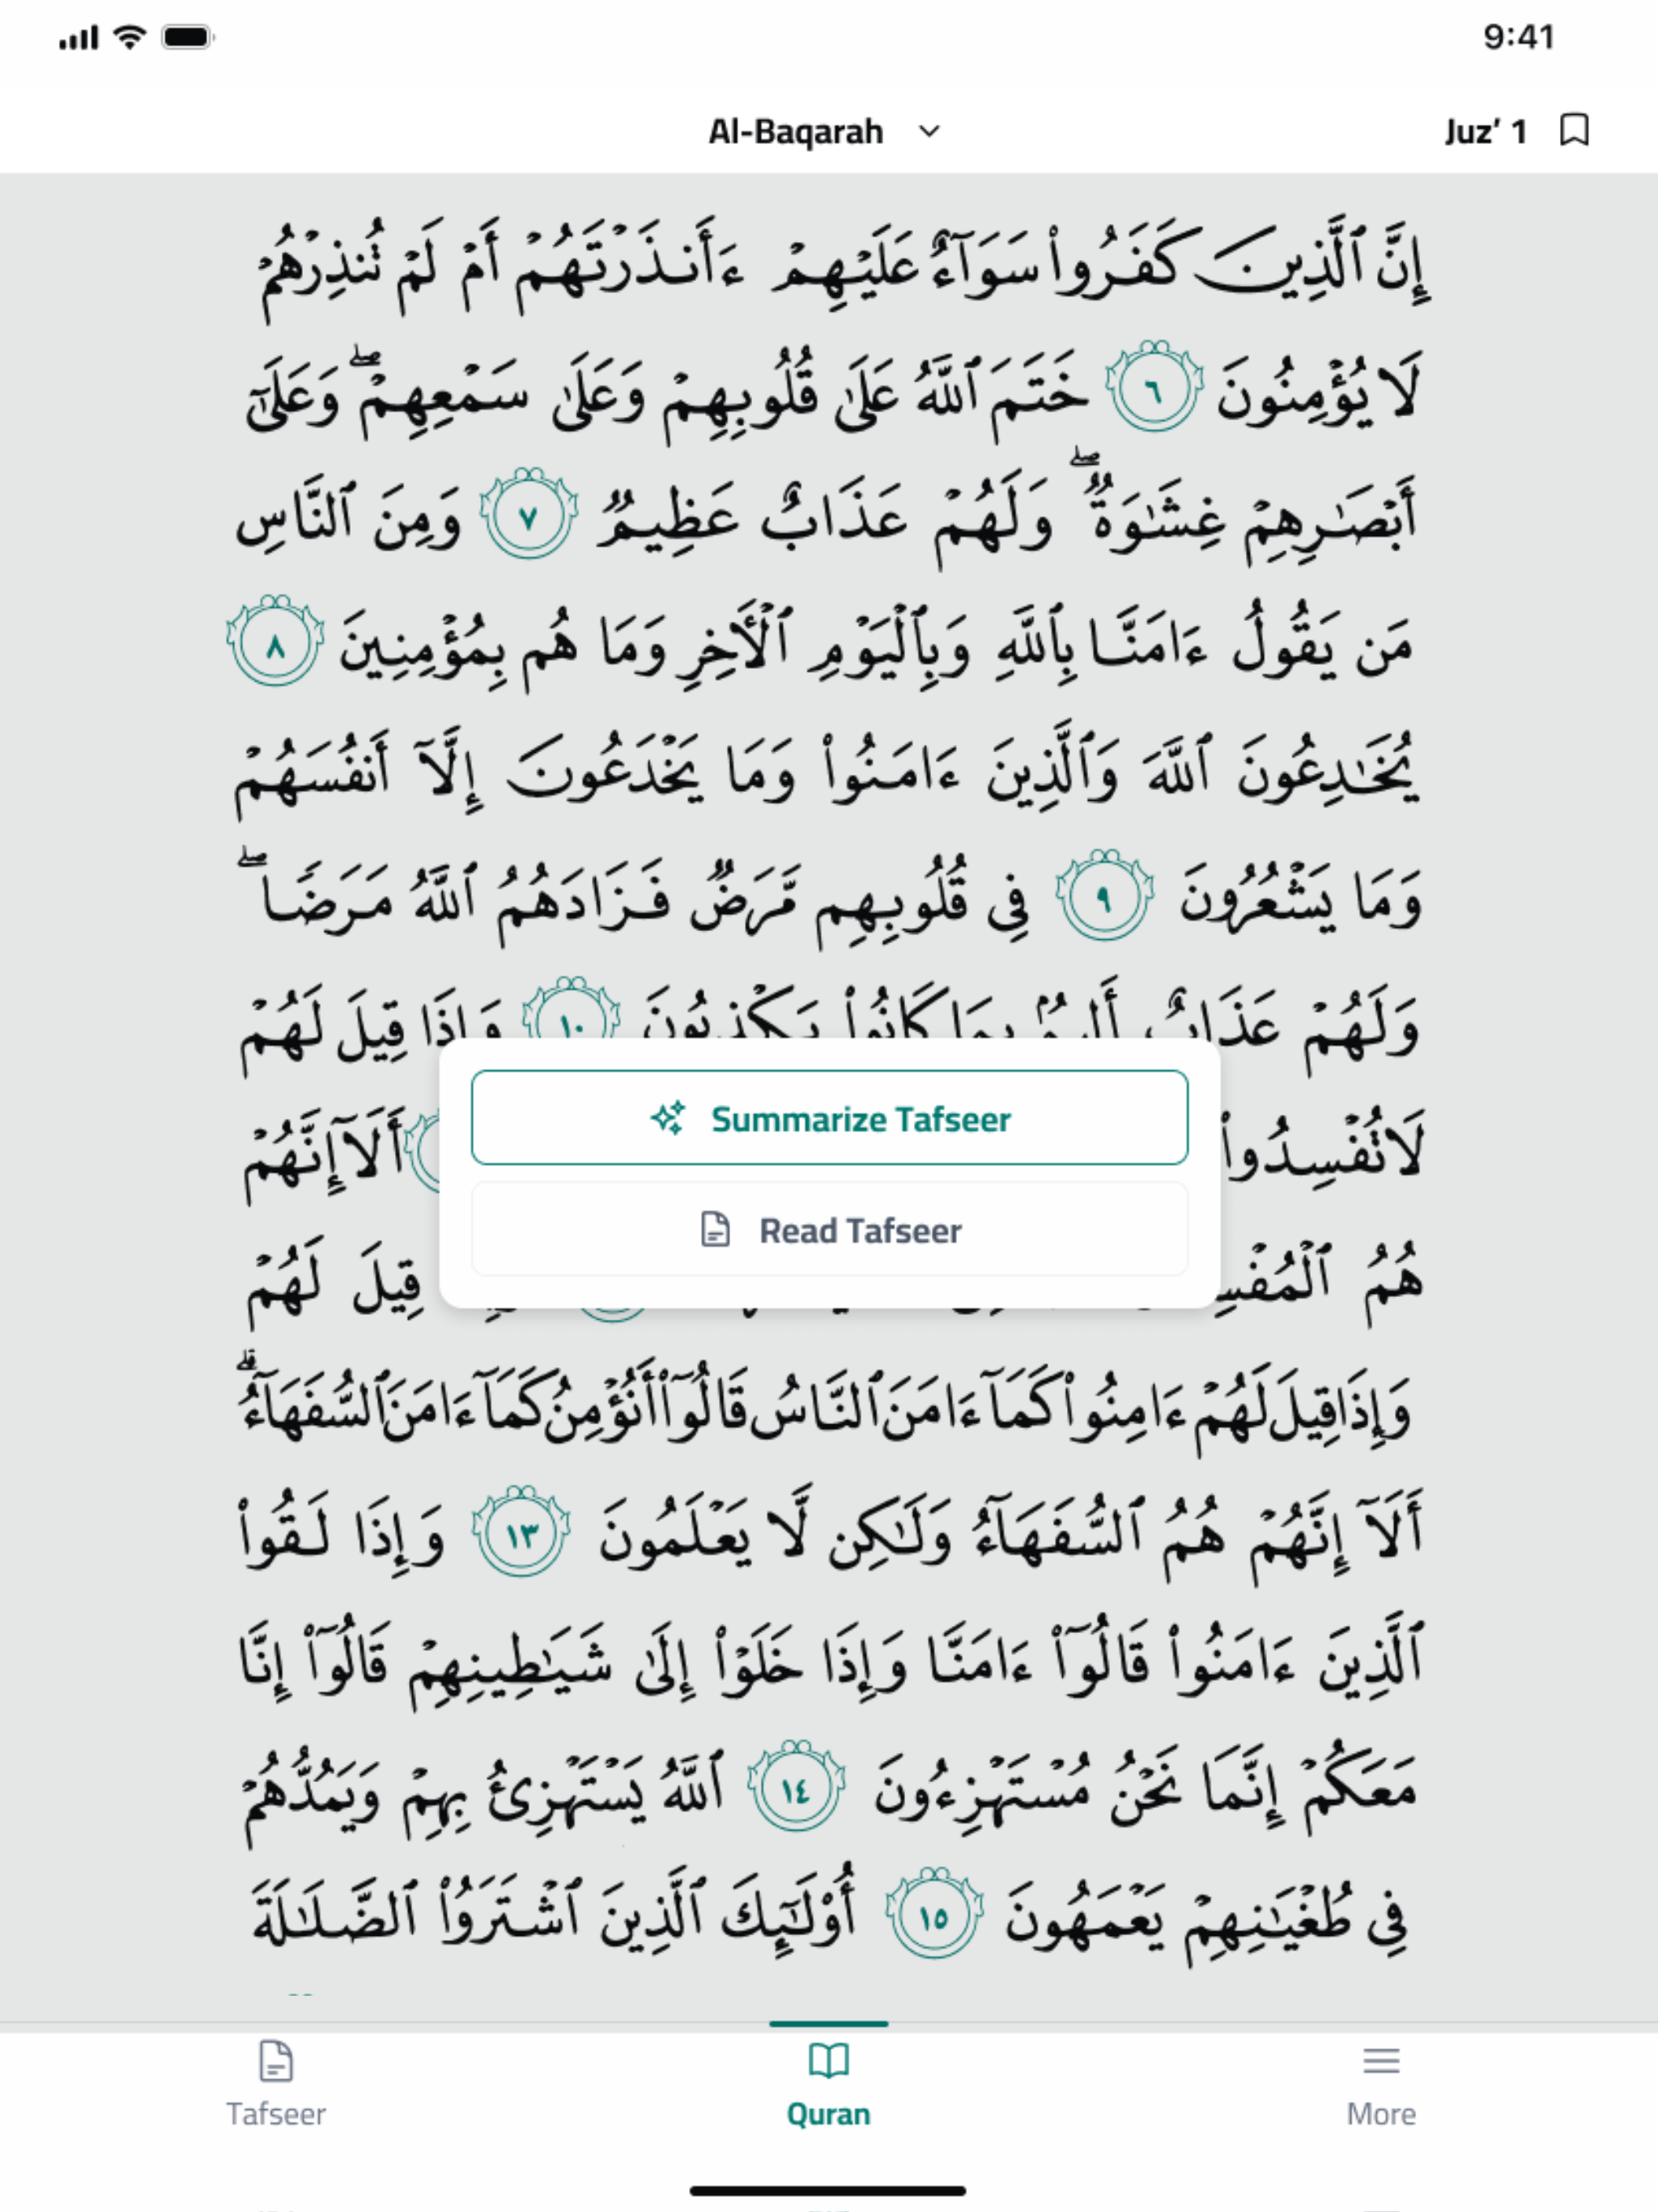 9:41
Al-Baqarah
Juz’ 1
إِنَّ ٱلَّذِينَ كَفَرُوا۟ سَوَآءٌ عَلَيْهِمْ ءَأَنذَرْتَهُمْ أَمْ لَمْ تُنذِرْهُمْ
لَا يُؤْمِنُونَ ٦ خَتَمَ ٱللَّهُ عَلَىٰ قُلُوبِهِمْ وَعَلَىٰ سَمْعِهِمْ ۖ وَعَلَىٰٓ
أَبْصَـٰرِهِمْ غِشَـٰوَةٌ ۖ وَلَهُمْ عَذَابٌ عَظِيمٌ ٧ وَمِنَ ٱلنَّاسِ
مَن يَقُولُ ءَامَنَّا بِٱللَّهِ وَبِٱلْيَوْمِ ٱلْـَٔاخِرِ وَمَا هُم بِمُؤْمِنِينَ ٨
يُخَـٰدِعُونَ ٱللَّهَ وَٱلَّذِينَ ءَامَنُوا۟ وَمَا يَخْدَعُونَ إِلَّآ أَنفُسَهُمْ
وَمَا يَشْعُرُونَ ٩ فِى قُلُوبِهِم مَّرَضٌ فَزَادَهُمُ ٱللَّهُ مَرَضًا ۖ
وَلَهُمْ عَذَابٌ أَلِيمٌۢ بِمَا كَانُوا۟ يَكْذِبُونَ ١٠ وَإِذَا قِيلَ لَهُمْ
Summarize Tafseer
لَا تُفْسِدُوا۟ أَلَآ إِنَّهُمْ
Read Tafseer
هُمُ قِيلَ لَهُمْ
وَإِذَا قِيلَ لَهُمْ ءَامِنُوا۟ كَمَآ ءَامَنَ ٱلنَّاسُ قَالُوٓا۟ أَنُؤْمِنُ كَمَآ ءَامَنَ ٱلسُّفَهَآءُ ۗ
أَلَآ إِنَّهُمْ هُمُ ٱلسُّفَهَآءُ وَلَـٰكِن لَّا يَعْلَمُونَ ١٣ وَإِذَا لَقُوا۟
ٱلَّذِينَ ءَامَنُوا۟ قَالُوٓا۟ ءَامَنَّا وَإِذَا خَلَوْا۟ إِلَىٰ شَيَـٰطِينِهِمْ قَالُوٓا۟ إِنَّا
مَعَكُمْ إِنَّمَا نَحْنُ مُسْتَهْزِءُونَ ١٤ ٱللَّهُ يَسْتَهْزِئُ بِهِمْ وَيَمُدُّهُمْ
فِى طُغْيَـٰنِهِمْ يَعْمَهُونَ ١٥ أُو۟لَـٰٓئِكَ ٱلَّذِينَ ٱشْتَرَوُا۟ ٱلضَّلَـٰلَةَ
Tafseer
Quran
More